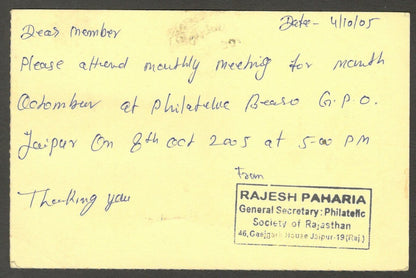 Dear member
Date - 4/10/05
Please attend monthly meeting for month
Octombur at Philatelic Bearo G.P.O.
Jaipur On 8th Oct 2005 at 5-00 PM
from
Thanking you
RAJESH PAHARIA
General Secretary: Philatelic
Society of Rajasthan
46, Gangori House Jaipur-19 (Raj.)